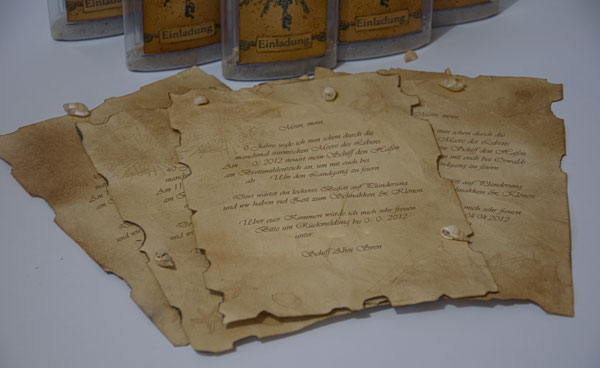 Einladung
Einladung
Einladung
Moin, moin,
0 Jahre segle ich nun schon durch die
manchmal stürmischen Meere des Lebens
Am 0. 0. 2012 steuert mein Schiff den Hafen
am an, um mit euch
ab Uhr den Landgang zu feiern
Dort wartet ein leckeres Büfett auf Plünderung
und wir haben viel Zeit zum Schnakken & Klönen
Über euer Kommen würde ich mich sehr freuen
Bitte um Rückmeldung bis 0. 0. 2012
unter
Schiff Ahoi Sven
Moin, moin
nun schon durch die
Meere des Lebens
Schiff den Hafen
um mit euch bei Oswalds
zu feiern
auf Plünderung
Schnakken & Klönen
mich sehr freuen
04.04.2012
40
Am 11
am
und wir